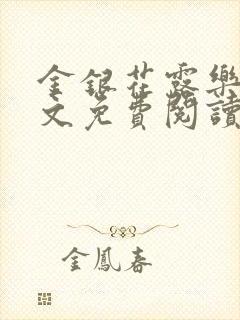 金銀花露樂
文免費閱讀
金鳳春